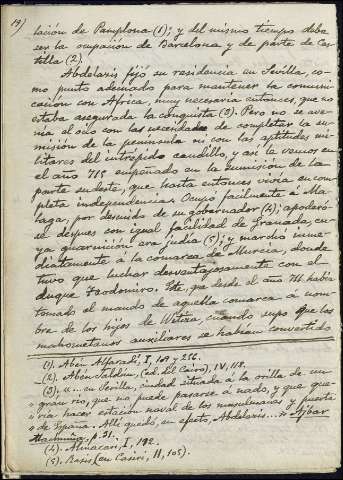 14)
lación de Pamplona (1); y del mismo tiempo debe
ser la ocupación de Barcelona y de parte de Cas-
tilla (2).
Abdelazis fijó su residencia en Sevilla, co-
mo punto adecuado para mantener la comuni-
cación con África, muy necesaria entonces, que no
estaba asegurada la conquista (3). Pero no se ave-
nía el ocio con las necesidades de completar la su-
misión de la península ni con las aptitudes mi-
litares del intrépido caudillo, y así le vemos en
el año 715 empeñado en la sumisión de la
parte sudeste, que hasta entonces vivía en com-
pleta independencia. Ocupó fácilmente a Má-
laga, por descuido de su gobernador (4); apoderó-
se después con igual facilidad de Granada, cu-
ya guarnición era judía (5); y marchó inme-
diatamente á la comarca de Murcia, donde
tuvo que luchar desventajosamente con el
duque Teodomiro. Éste, que desde el año 711 había
tomado el mando de aquella comarca á nom-
bre de los hijos de Witiza, cuando supo que los
mahometanos auxiliares se habían convertido
(1). Abén Alfaradí, I, 109 y 256.
(2). Aben Jaldún, (ed. del Cairo), IV, 118.
(3). «... en Sevilla, ciudad situada á la orilla de un
gran río, que no puede pasarse á nado, y que que-
ría hacer estación naval de los musulmanes y puerta
de España. Allí quedó, en efecto, Abdelazis...» Ajbar
Machmúa, p. 31.
(4). Almacarí, I, 192.
(5). Rasis (en Casiri, II, 105).